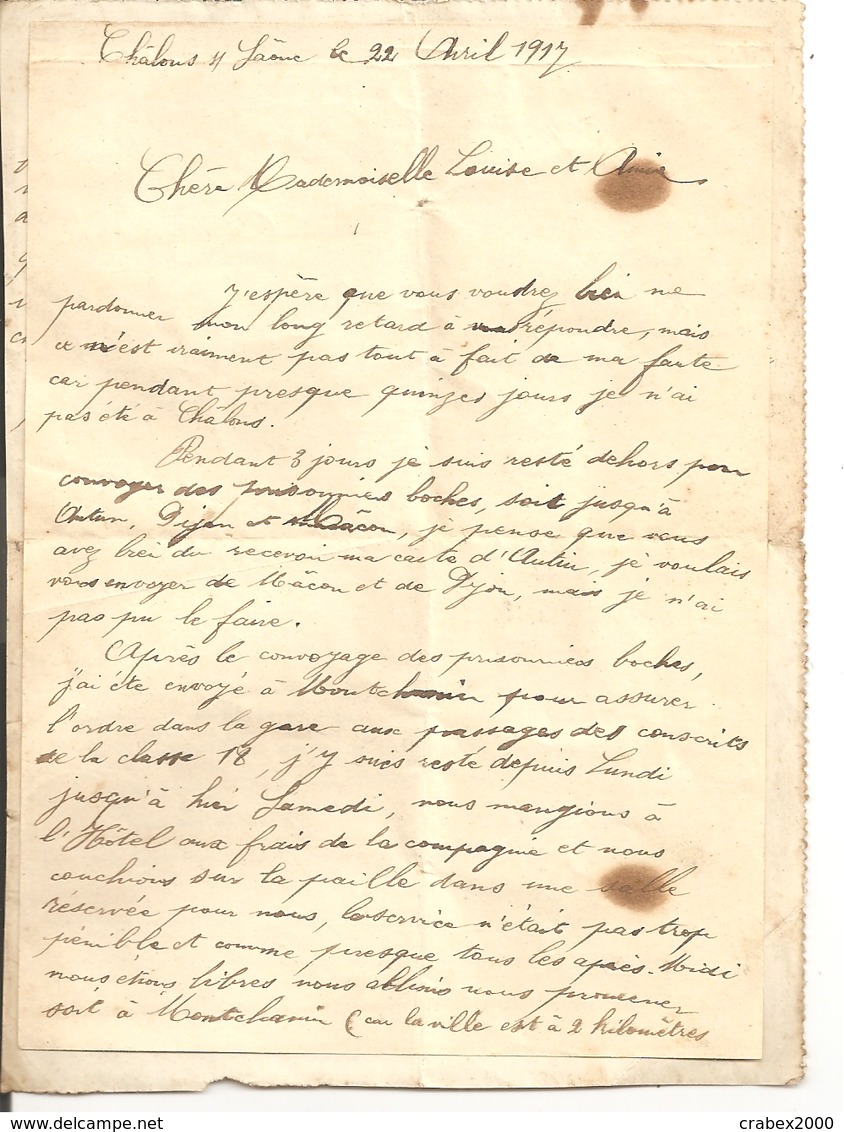 Châlons s/ Saône le 22 Avril 1917
Chère Mademoiselle Louise et Amie
J'espère que vous voudrez bien me
pardonner mon long retard à répondre, mais
ce n'est vraiment pas tout à fait de ma faute
car pendant presque quinzes jours je n'ai
pas été à Châlons.
Pendant 3 jours je suis resté dehors pour
convoyer des prisonniers boches, soit jusqu'à
Autun, Dijon et Mâcon, je pense que vous
avez bien du recevoir ma carte d'Autun, je voulais
vous envoyer de Mâcon et de Dijon, mais je n'ai
pas pu le faire.
Après le convoyage des prisonniers boches,
j'ai été envoyé à Montchanin pour assurer
l'ordre dans la gare aux passages des conscrits
de la classe 18, j'y suis resté depuis Lundi
jusqu'à hier Samedi, nous mangions à
l'Hôtel aux frais de la compagnie et nous
couchions sur la paille dans une salle
réservée pour nous, le service n'était pas trop
pénible et comme presque tous les après-Midi
nous étions libres nous allions nous promener
soit à Montchanin (car la ville est à 2 kilomètres
crabex2000